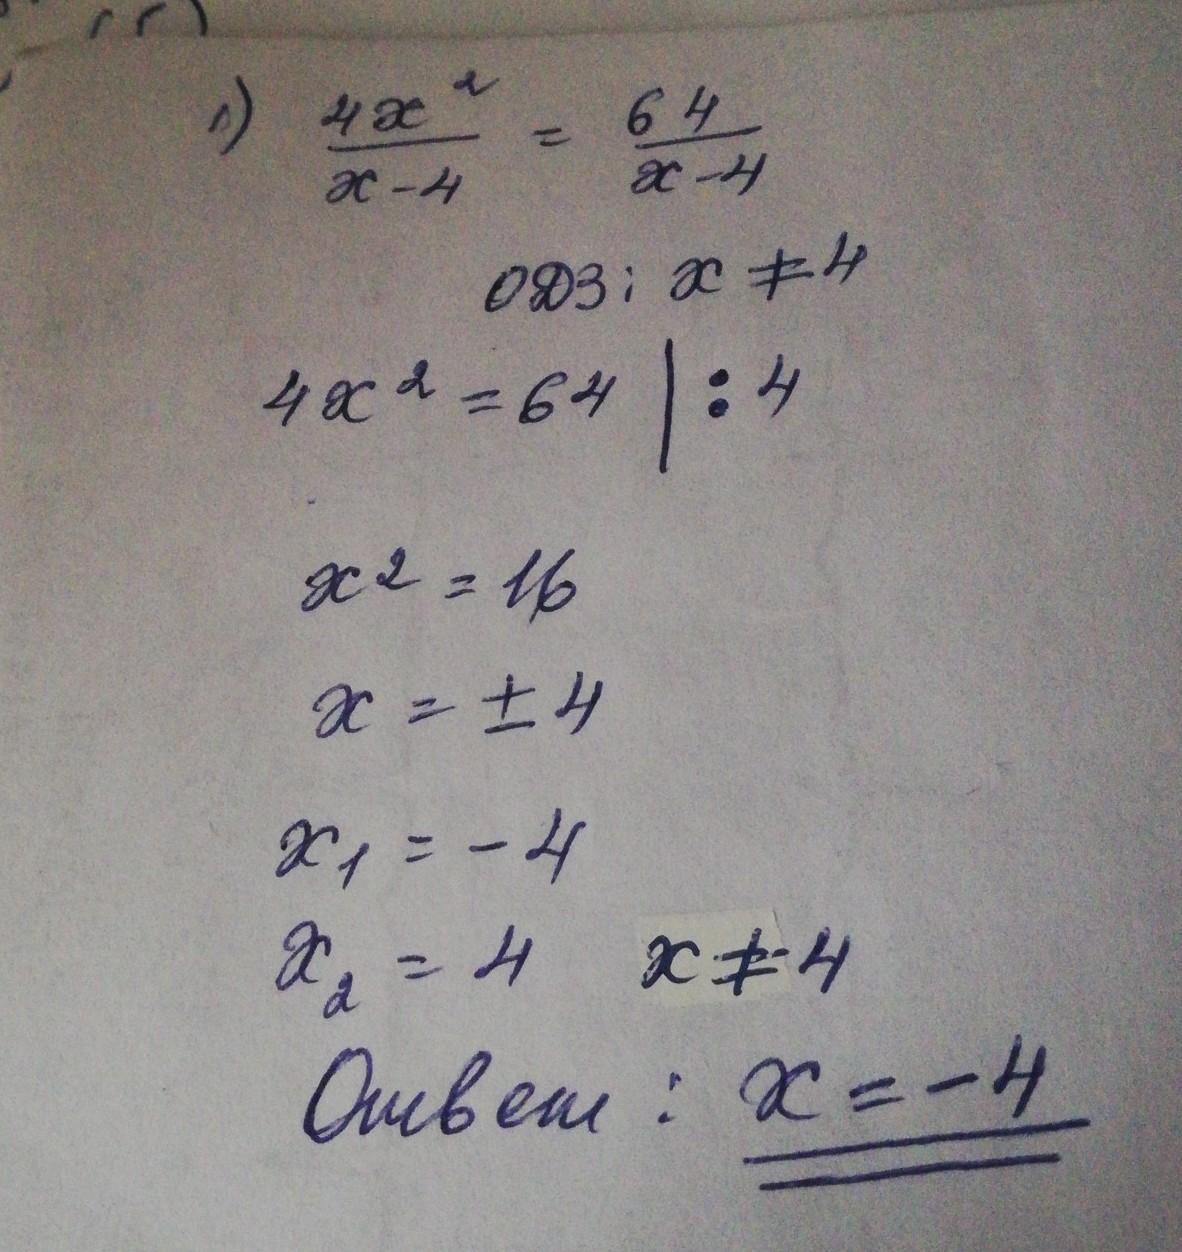 1) 4x² / x-4 = 64 / x-4
ОДЗ: x ≠ 4
4x² = 64 | : 4
x² = 16
x = ± 4
x₁ = - 4
x₂ = 4 x ≠ 4
Ответ: x = - 4